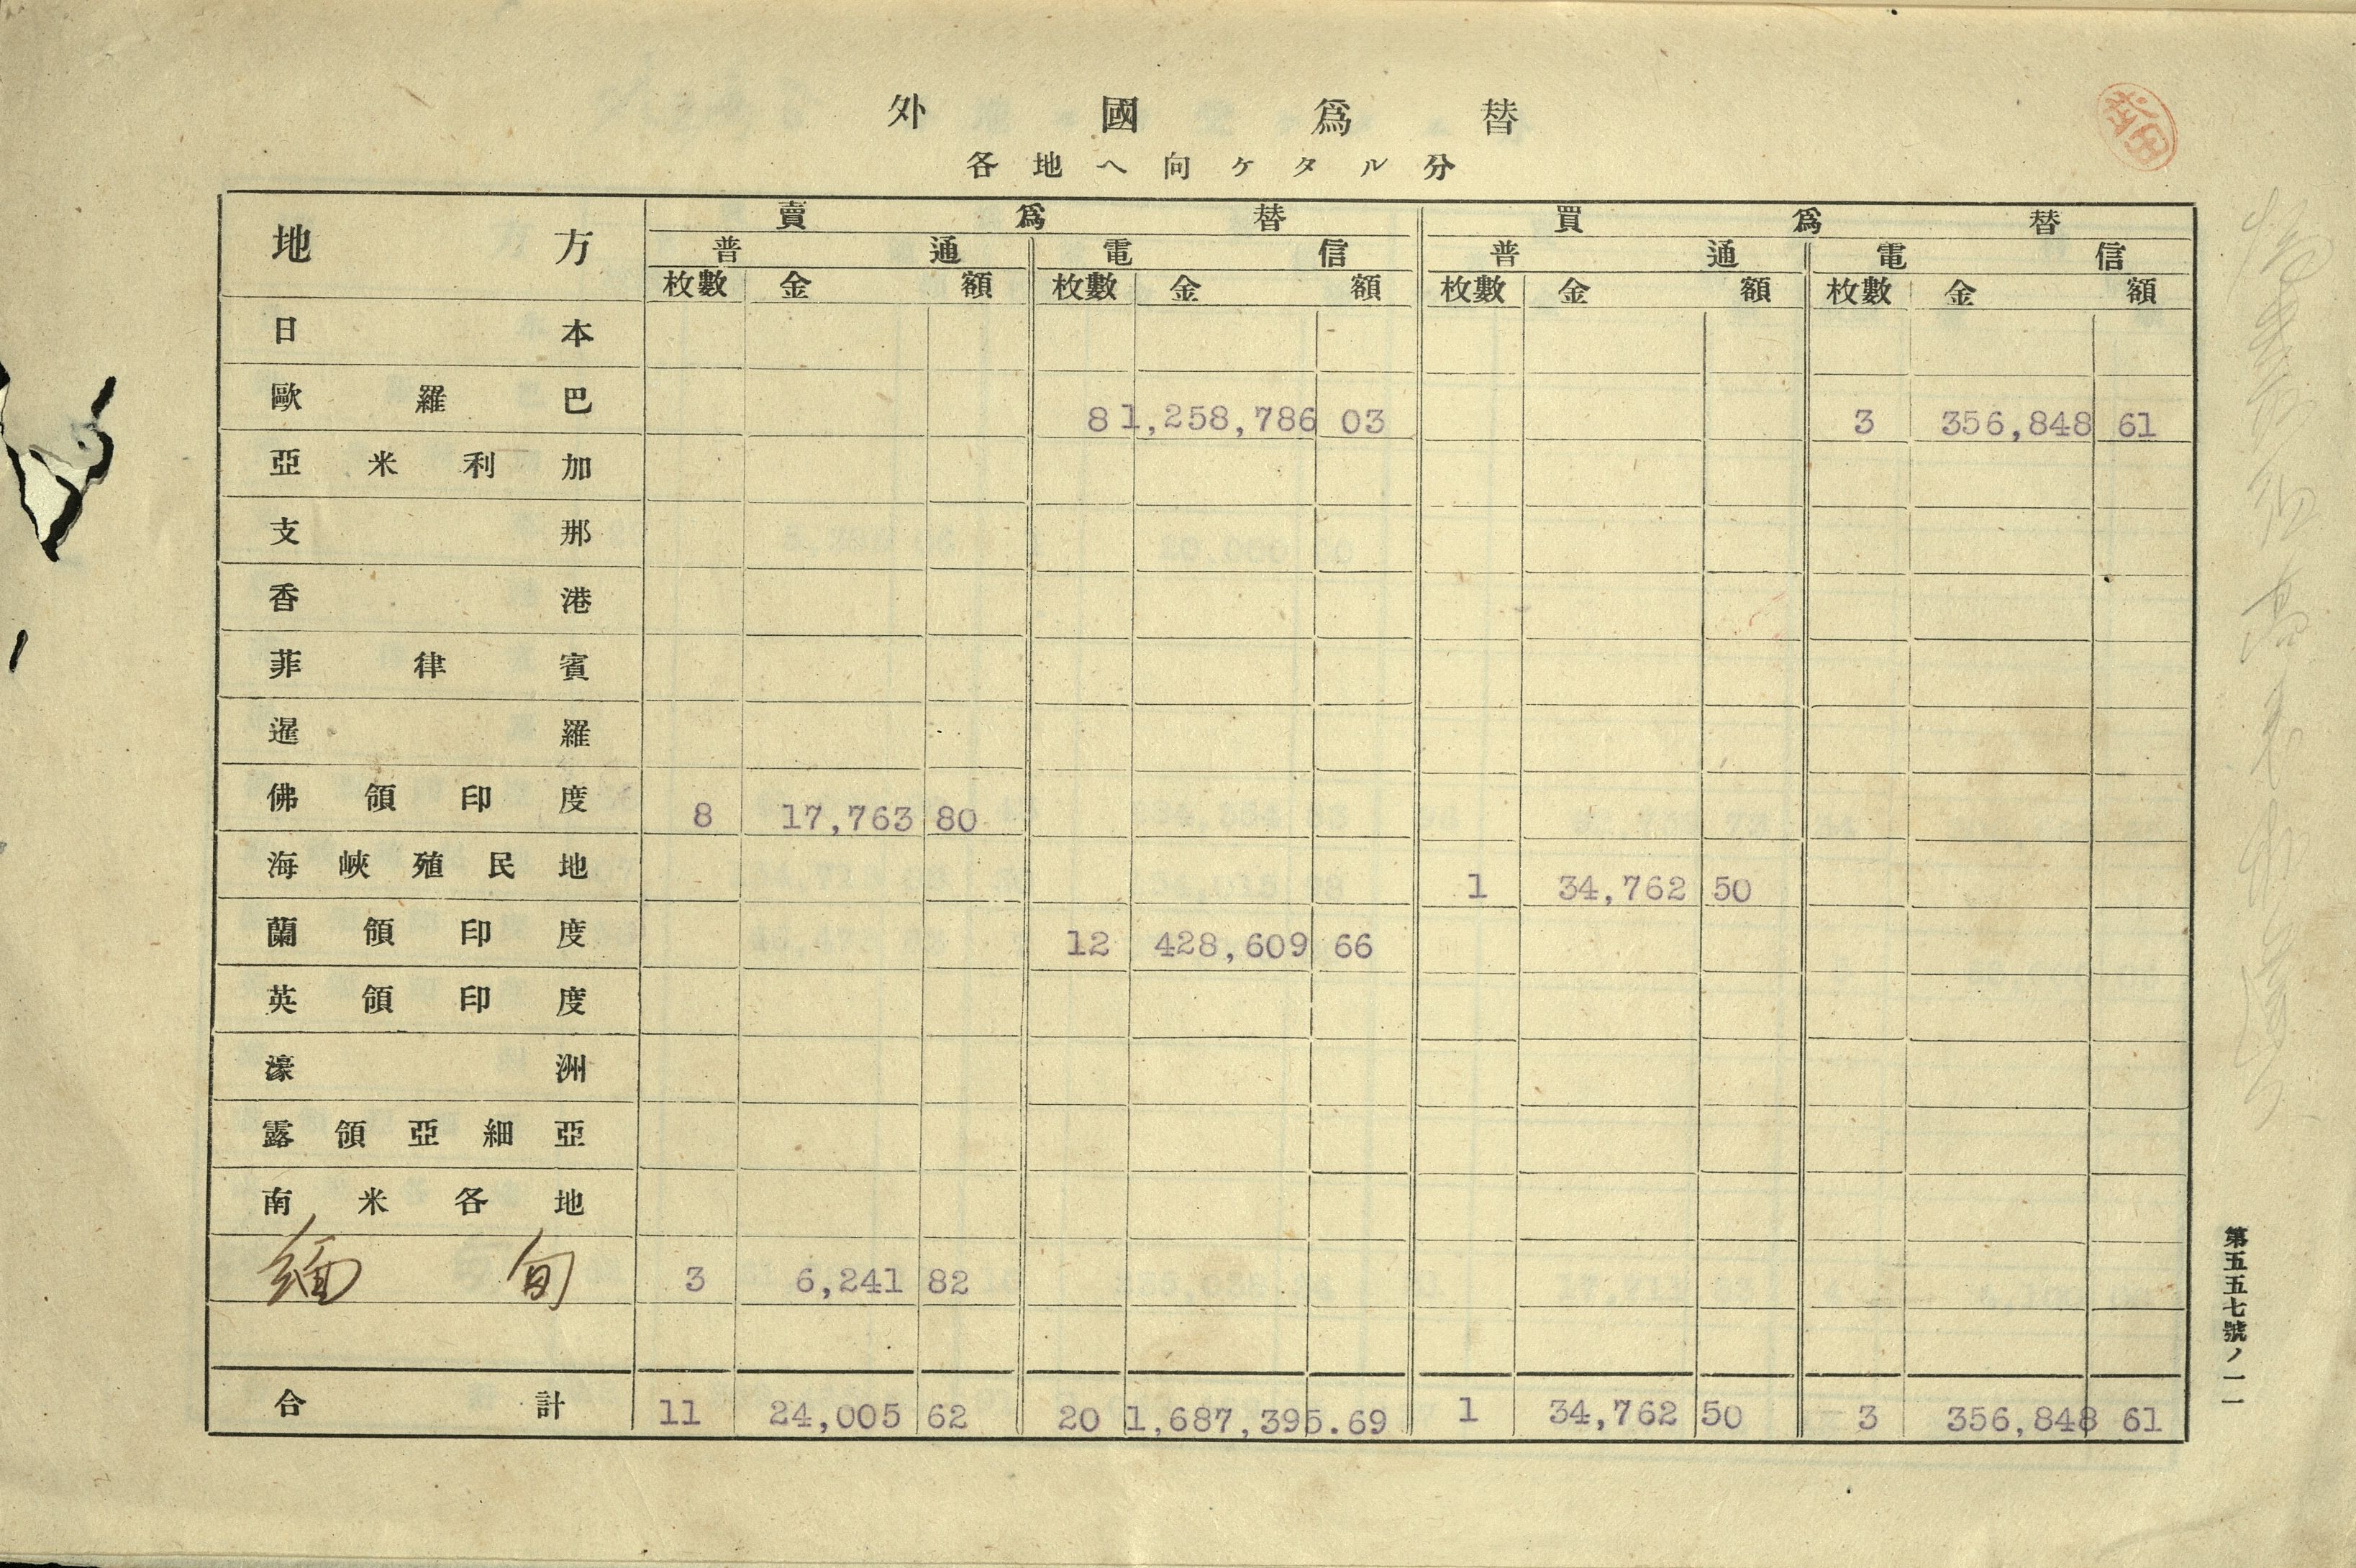 外國爲替
各地ヘ向ケタル分
地方 賣爲替 買爲替
普通 電信 普通 電信
枚數 金額 枚數 金額 枚數 金額 枚數 金額
日本
歐羅巴 8 1,258,786 03 3 356,848 61
亞米利加
支那
香港
菲律賓
暹羅
佛領印度 8 17,763 80
海峽殖民地 1 34,762 50
蘭領印度 12 428,609 66
英領印度
濠洲
露領亞細亞
南米各地
緬甸 3 6,241 82
合計 11 24,005 62 20 1,687,395.69 1 34,762 50 3 356,848 61
第五五七號ノ二